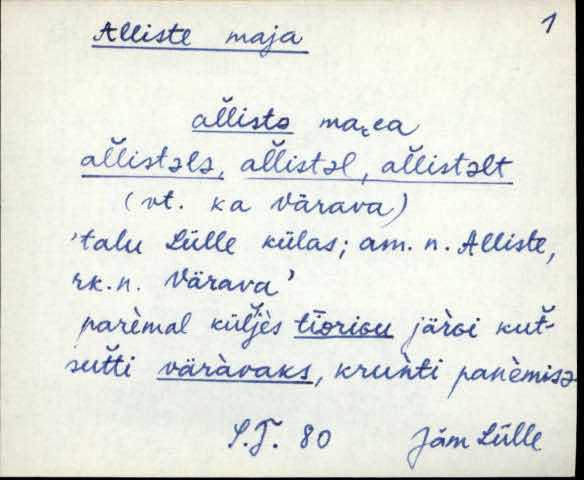 Alliste maja 1
al̆listə maᴈea
al̆listələ, al̆listəl, al̆listəlt
(vt. ka Värava)
'talu Lülle külas; am. n. Alliste,
rk.n. Värava'
parèmal kül̆jès
järoi kut̆-
sut̆ti väràvaks, krun̆ti panèmisə
S.T. 80 Jäm Lülle